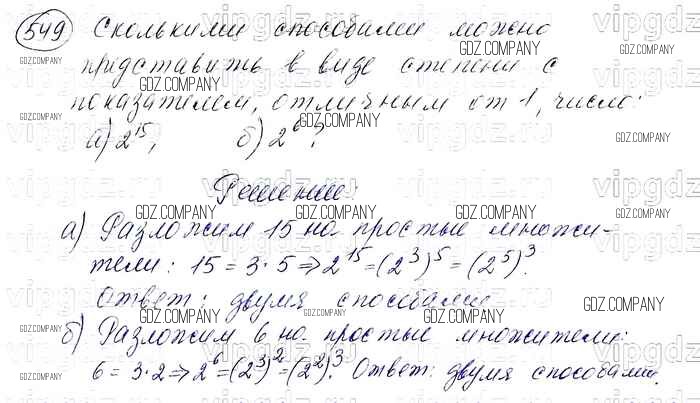 549 Сколькими способами можно
представить в виде степени с
показателем, отличным от 1, число:
а) 2^15, б) 2^6?
Решение:
а) Разложим 15 на простые множи-
тели: 15 = 3·5 ⇒ 2^15 = (2^3)^5 = (2^5)^3.
Ответ: двумя способами
б) Разложим 6 на простые множители:
6 = 3·2 ⇒ 2^6 = (2^3)^2 = (2^2)^3. Ответ: двумя способами.
GDZ.COMPANY
vipgdz.ru